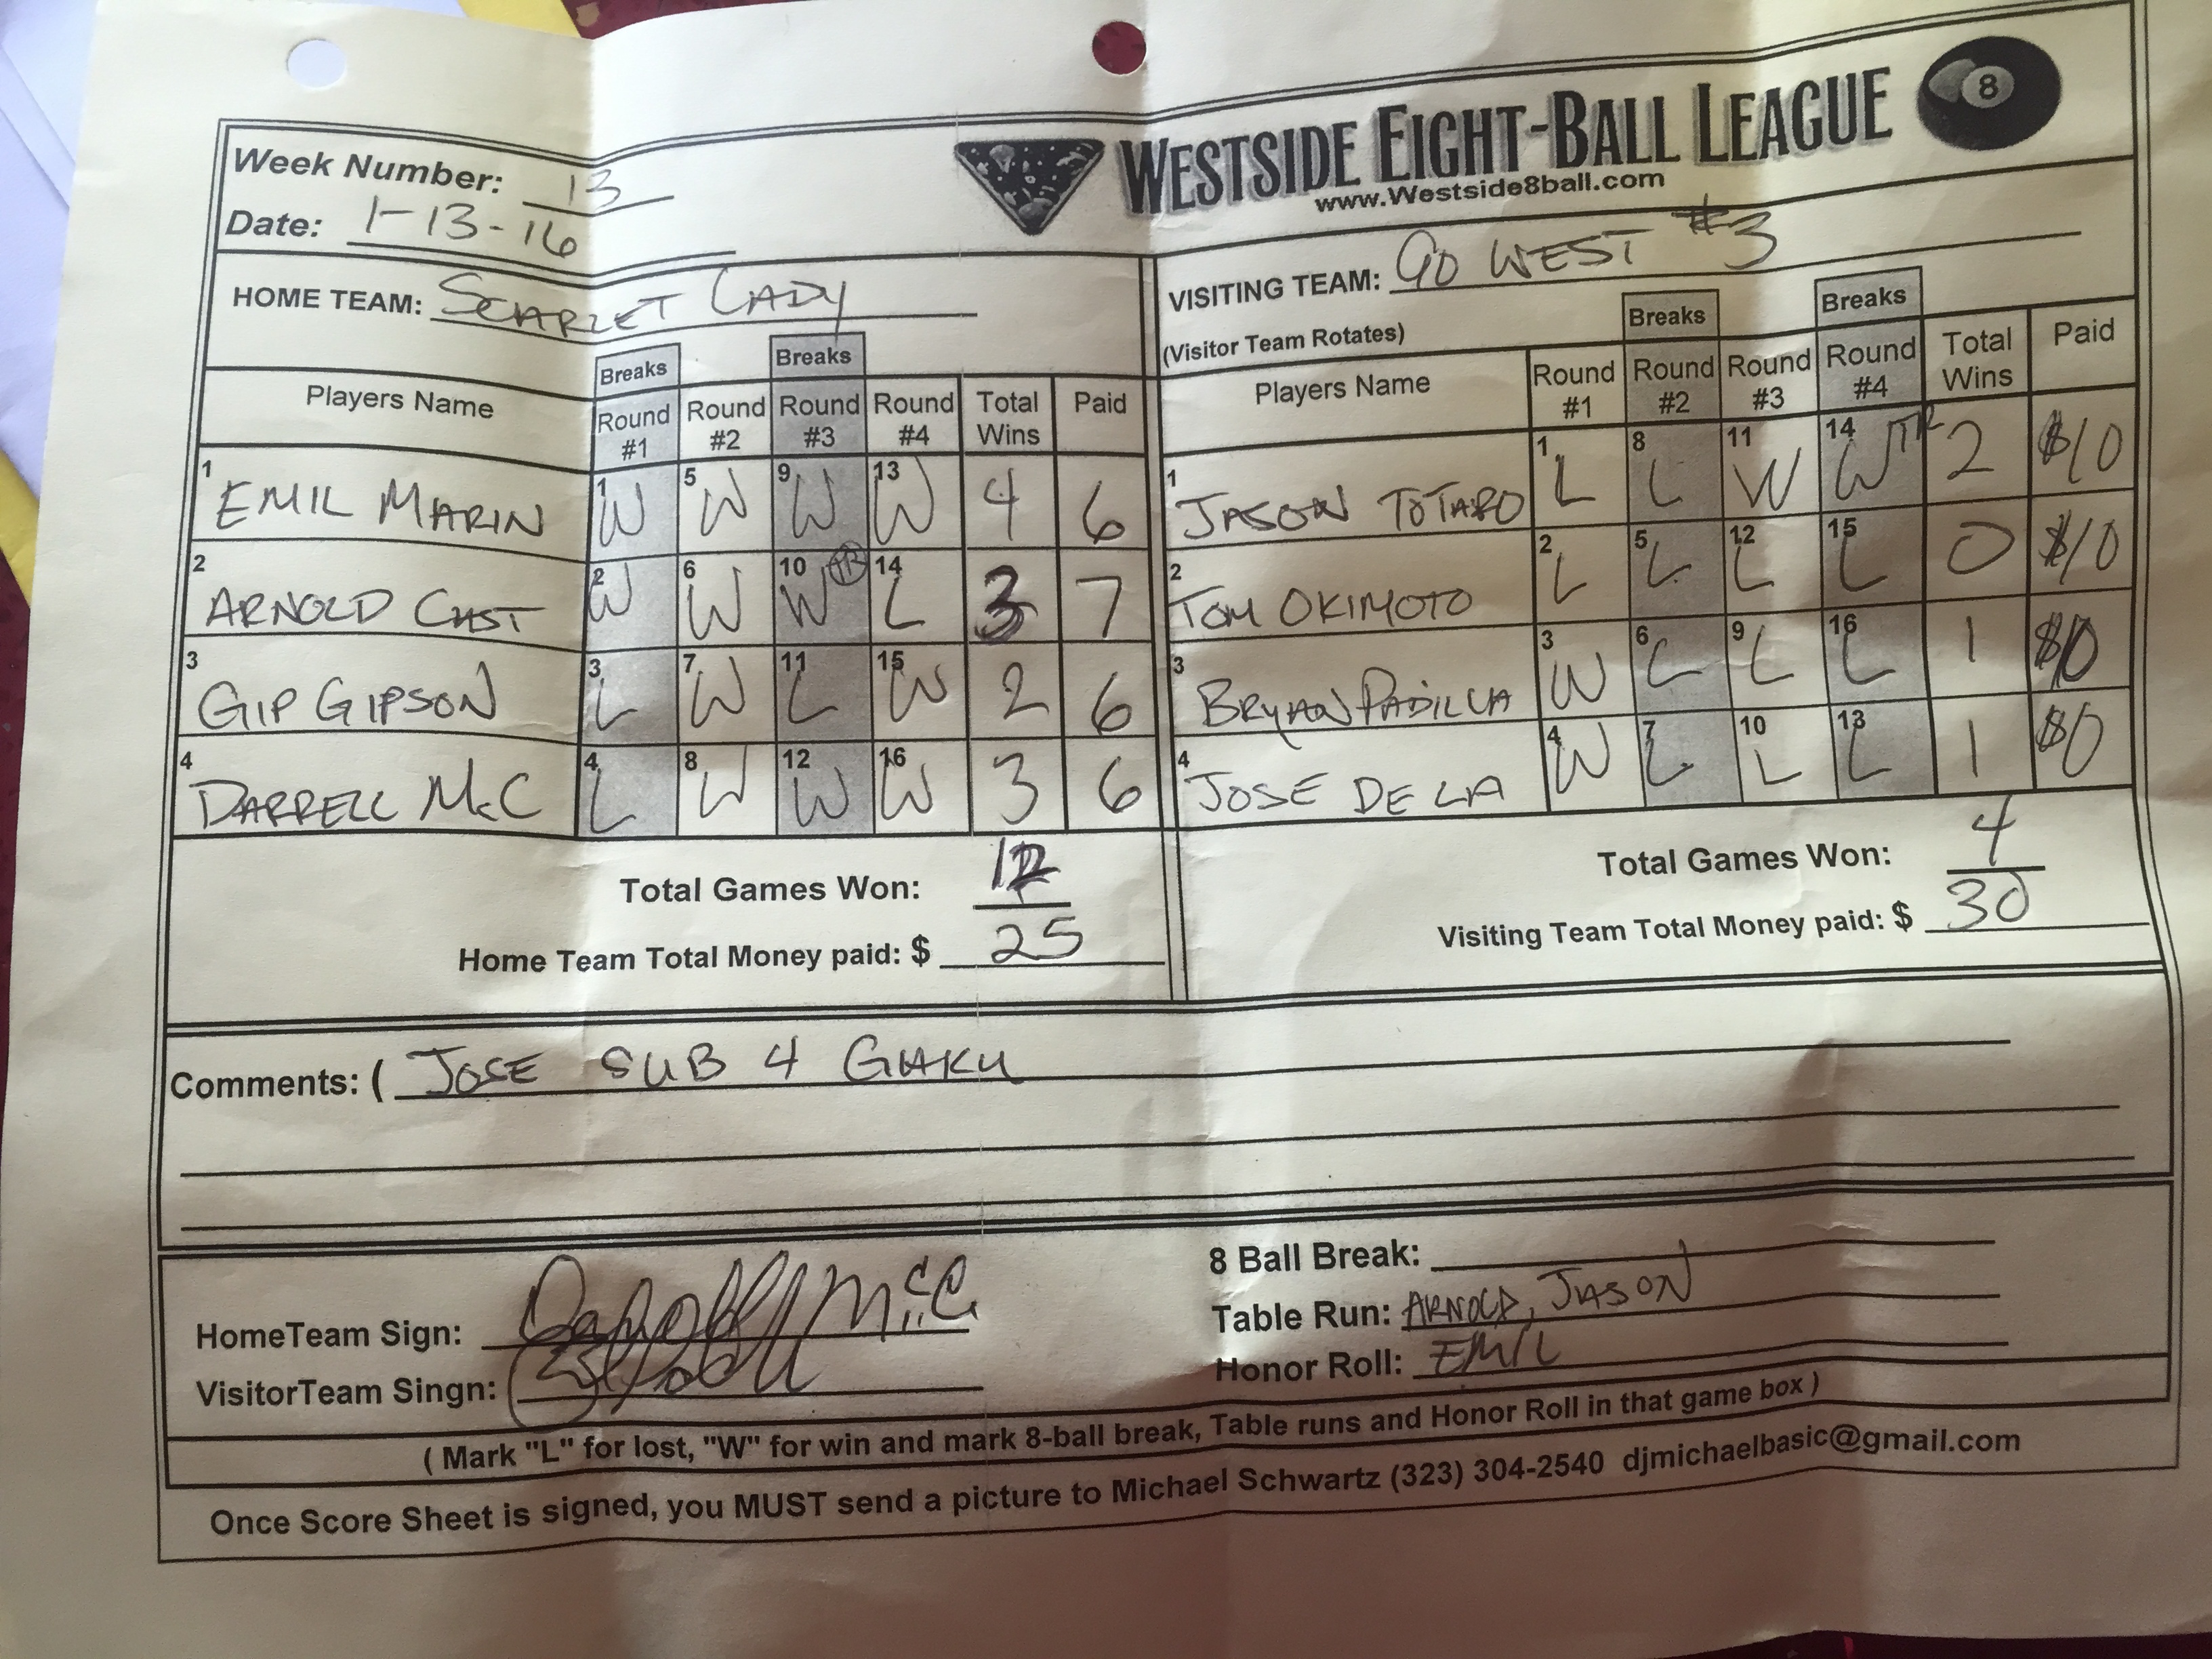 WESTSIDE EIGHT-BALL LEAGUE 8
www.Westside8ball.com
Week Number: 13
Date: 1-13-16
HOME TEAM: SCARLET LADY
VISITING TEAM: GO WEST #3
(Visitor Team Rotates)
Breaks Breaks
Players Name Round #1 Round #2 Round #3 Round #4 Total Wins Paid
1 EMIL MARIN 1 W 5 W 9 W 13 W 4 6
2 ARNOLD CAST 2 W 6 W 10 W TR 14 L 3 7
3 GIP GIPSON 3 L 7 W 11 L 15 W 2 6
4 DARRELL McC 4 L 8 W 12 W 16 W 3 6
Total Games Won: 12
Home Team Total Money paid: $ 25
Breaks Breaks
Players Name Round #1 Round #2 Round #3 Round #4 Total Wins Paid
1 JASON TOTARO 1 L 8 L 11 W 14 W TR 2 $10
2 TOM OKIMOTO 2 L 5 L 12 L 15 L 0 $10
3 BRYAN PADILLA 3 W 6 L 9 L 16 L 1 $10
4 JOSE DE LA 4 W 7 L 10 L 13 L 1 $0
Total Games Won: 4
Visiting Team Total Money paid: $ 30
Comments: ( JOSE SUB 4 GAKU
HomeTeam Sign: McC
VisitorTeam Singn:
8 Ball Break:
Table Run: ARNOLD, JASON
Honor Roll: EMIL
( Mark "L" for lost, "W" for win and mark 8-ball break, Table runs and Honor Roll in that game box )
Once Score Sheet is signed, you MUST send a picture to Michael Schwartz (323) 304-2540 djmichaelbasic@gmail.com